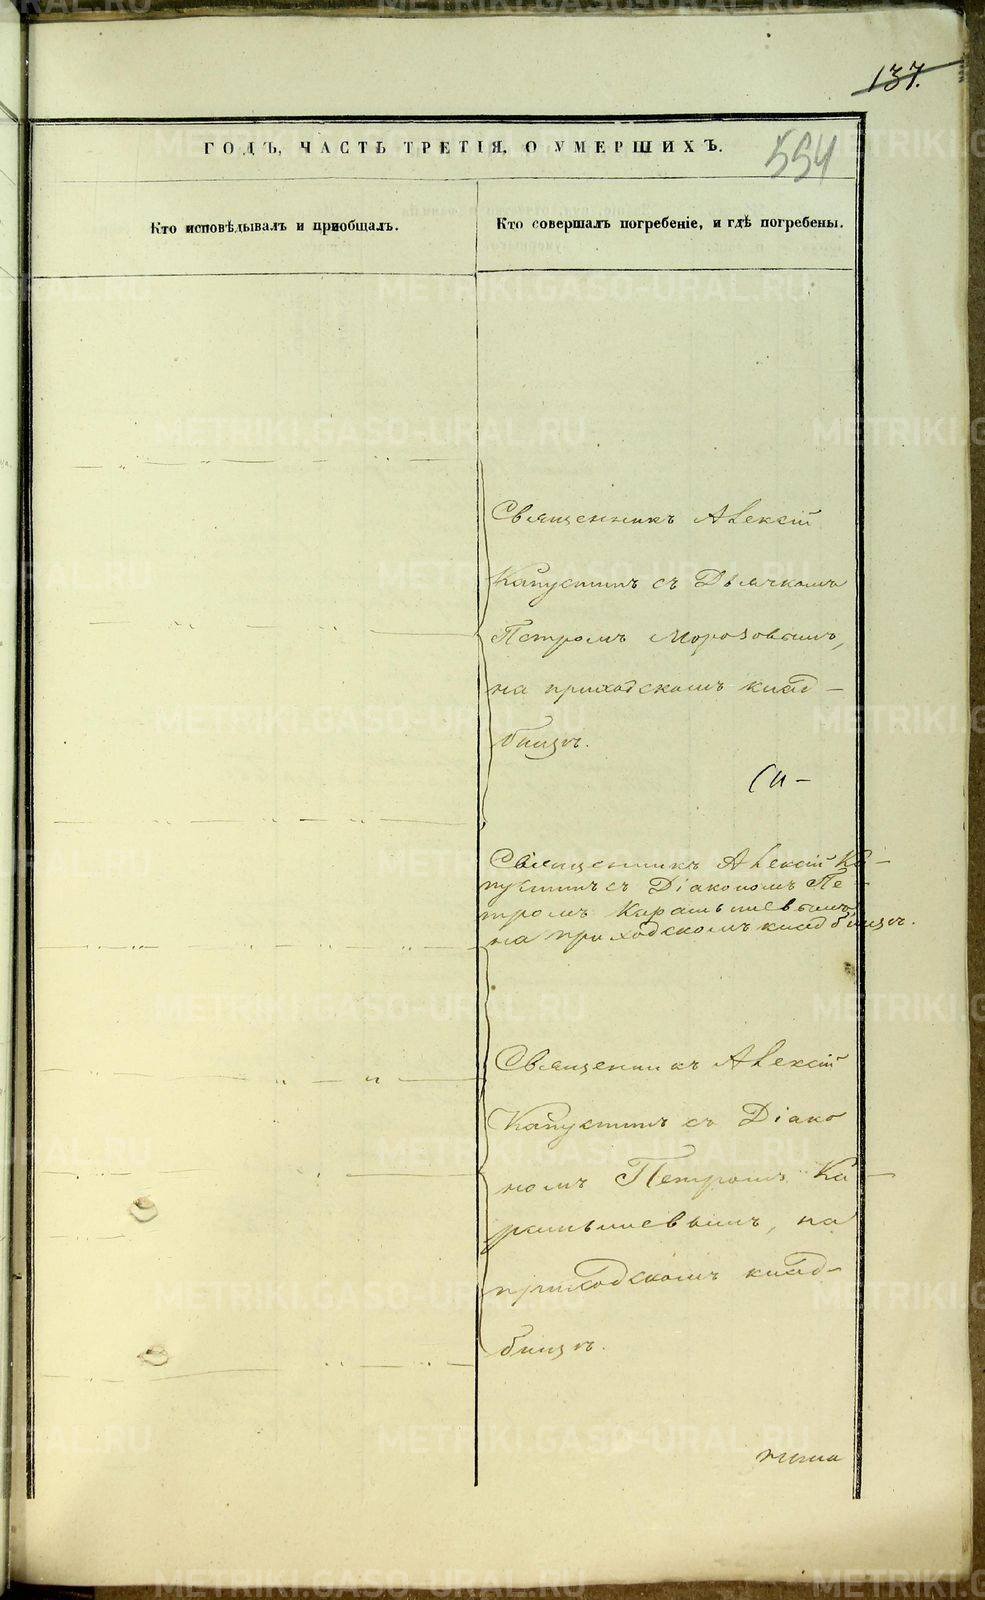 137.
ГОДЪ, ЧАСТЬ ТРЕТІЯ, О УМЕРШИХЪ.
554
Кто исповѣдывалъ и приобщалъ.
Кто совершалъ погребеніе, и гдѣ погребены.
Священникъ Алексій
Капустинъ съ Дьячкомъ
Петромъ Морозовымъ,
на приходскомъ клад-
бищѣ.
Священникъ Алексій Ка-
пустинъ съ Діакономъ Пе-
тромъ
на приходскомъ кладбищѣ.
Священникъ Алексій
Капустинъ съ Діако
номъ Петромъ Ка-
на
приходскомъ клад-
бищѣ.
METRIKI.GASO-URAL.RU